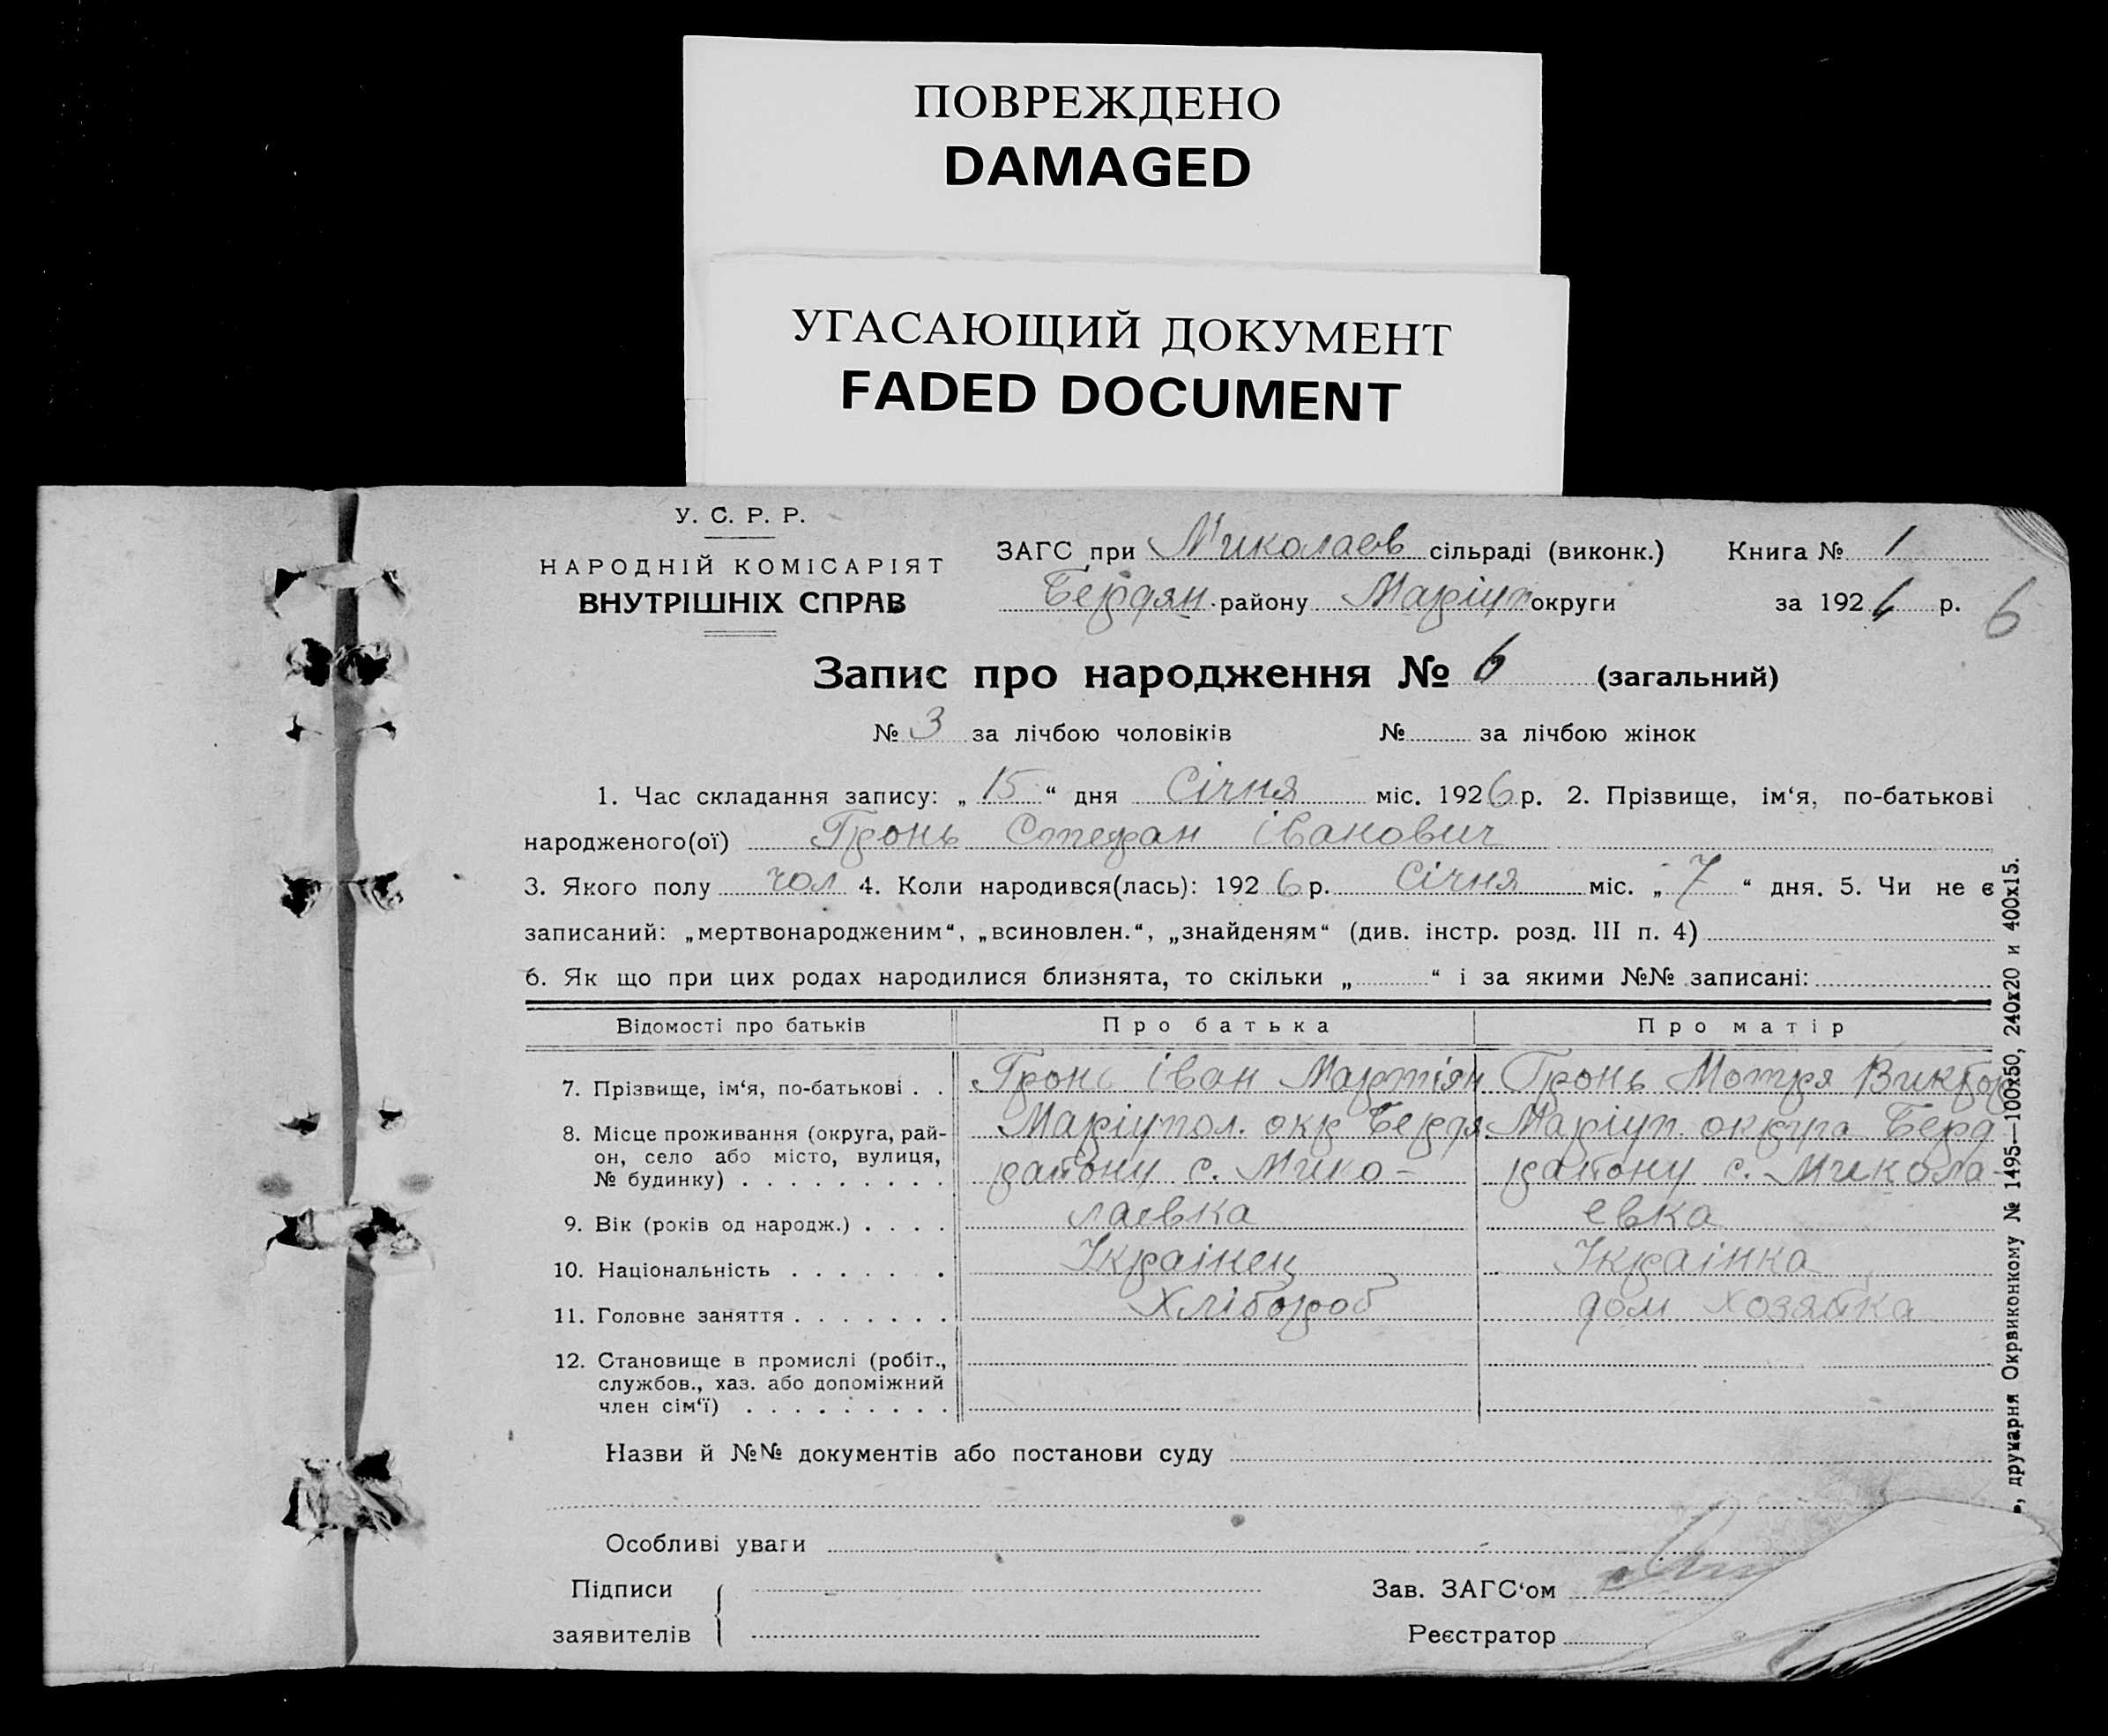 ПОВРЕЖДЕНО
DAMAGED
УГАСАЮЩИЙ ДОКУМЕНТ
FADED DOCUMENT
У. С. Р. Р.
НАРОДНІЙ КОМІСАРІЯТ
ВНУТРІШНІХ СПРАВ
ЗАГС при Миколаєв сільраді (виконк.) Книга № 1
Бердян. району Маріуп округи за 1926 р. 6
Запис про народження № 6 (загальний)
№ 3 за лічбою чоловіків № за лічбою жінок
1. Час складання запису: „ 15 “ дня Січня міс. 1926 р. 2. Прізвище, ім‘я, по-батькові
народженого(ої) Гронь Стефан Іванович
3. Якого полу чол 4. Коли народився(лась): 1926 р. Січня міс. „ 7 “ дня. 5. Чи не є
записаний: „мертвонародженим“, „всиновлен.“, „знайденям“ (див. інстр. розд. III п. 4)
6. Як що при цих родах народилися близнята, то скільки „ “ і за якими №№ записані:
Відомості про батьків Про батька Про матір
7. Прізвище, ім‘я, по-батькові . . Гронь Іван Мартіян Гронь Мотря Виктор
8. Місце проживання (округа, рай- Маріупол. окр Бердя. Маріуп. округа Берд
он, село або місто, вулиця, району с. Мико- району с. Микола-
№ будинку) . . . . . . . . .
9. Вік (років од народж.) . . . . лаєвка євка
10. Національність . . . . . . Українец Українка
11. Головне заняття . . . . . . . Хлібороб дом хозяйка
12. Становище в промислі (робіт.,
службов., хаз. або допоміжний
член сім‘ї) . . . . . . . . .
Назви й №№ документів або постанови суду
Особливі уваги
Підписи
заявителів
Зав. ЗАГС‘ом
Реєстратор
друкарня Окрвиконкому № 1495—100х50, 240х20 и 400х15.